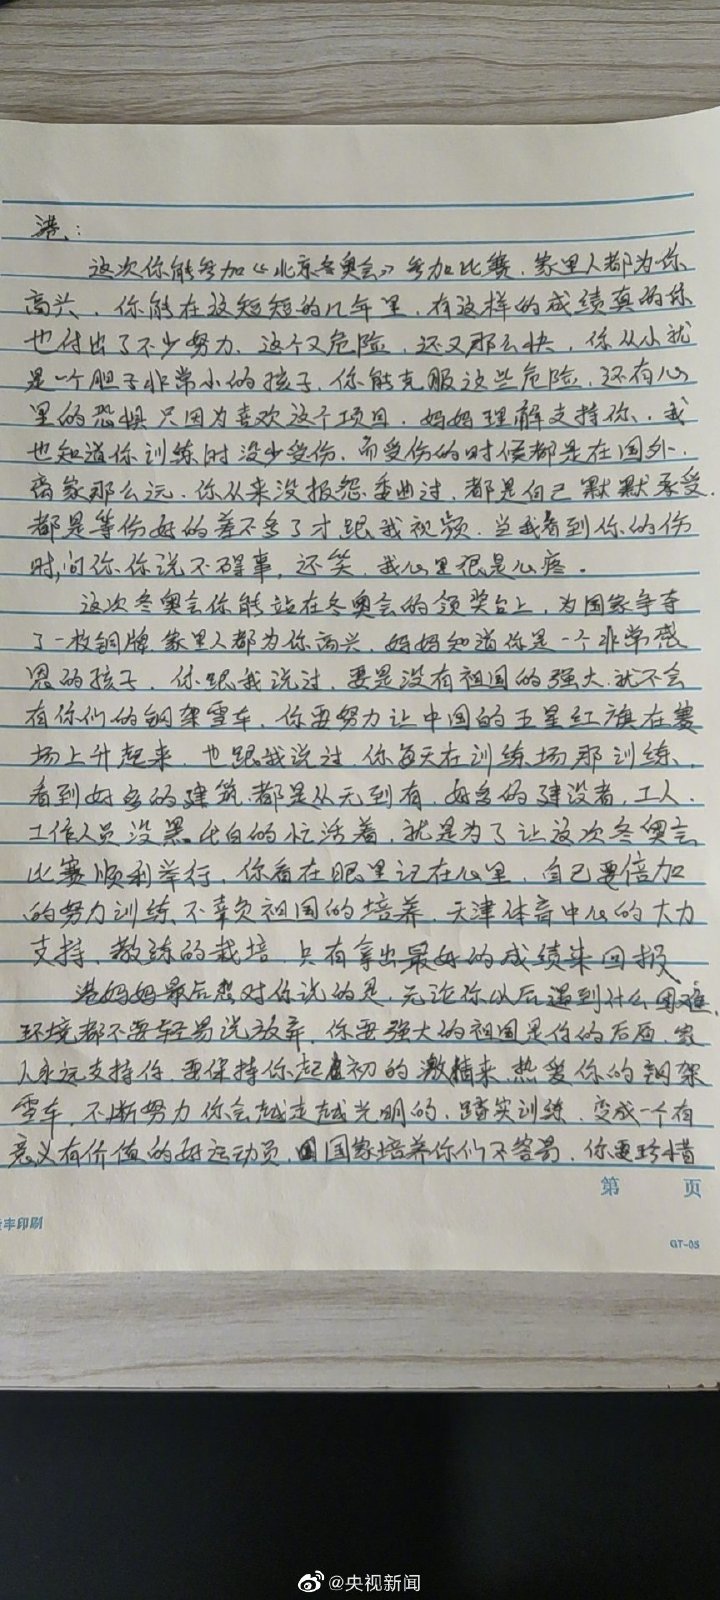 港:
这次你能参加《北京冬奥会》参加比赛,家里人都为你
高兴、你能在这短短的几年里,有这样的成绩真的你
也付出了不少努力、这个又危险,还又那么快,你从小就
是一个胆子非常小的孩子,你能克服这些危险,还有心
里的恐惧只因为喜欢这个项目,妈妈理解支持你,我
也知道你训练时没少受伤,而受伤的时候都是在国外,
离家那么远,你从来没报怨委曲过,都是自己默默承受,
都是等伤好的差不多了才跟我视频,当我看到你的伤
时,问你你说不碍事,还笑,我心里很是心疼。
这次冬奥会你能站在冬奥会的领奖台上,为国家争夺
了一枚铜牌家里人都为你高兴,妈妈知道你是一个非常感
恩的孩子,你跟我说过,要是没有祖国的强大就不会
有你们的钢架雪车,你要努力让中国的五星红旗在赛
场上升起来,也跟我说过,你每天在训练场那训练、
看到好多的建筑都是从无到有,好多的建设者,工人,
工作人员没黑比白的忙活着,就是为了让这次冬奥会
比赛顺利举行,你看在眼里记在心里,自己要倍加
的努力训练不辜负祖国的培养,天津体育中心的大力
支持,教练的栽培,只有拿出最好的成绩来回报
港妈妈最后想对你说的是,无论你以后遇到什么困难,
环境都不要轻易说放弃,你要强大的祖国是你的后盾,家
人永远支持你,要保持你起初的激情来热爱你的钢架
雪车,不断努力你会越走越光明的,踏实训练,变成一个有
意义有价值的好运动员,国家培养你们不容易,你要珍惜
第 页
丰印刷
GT-05
@央视新闻